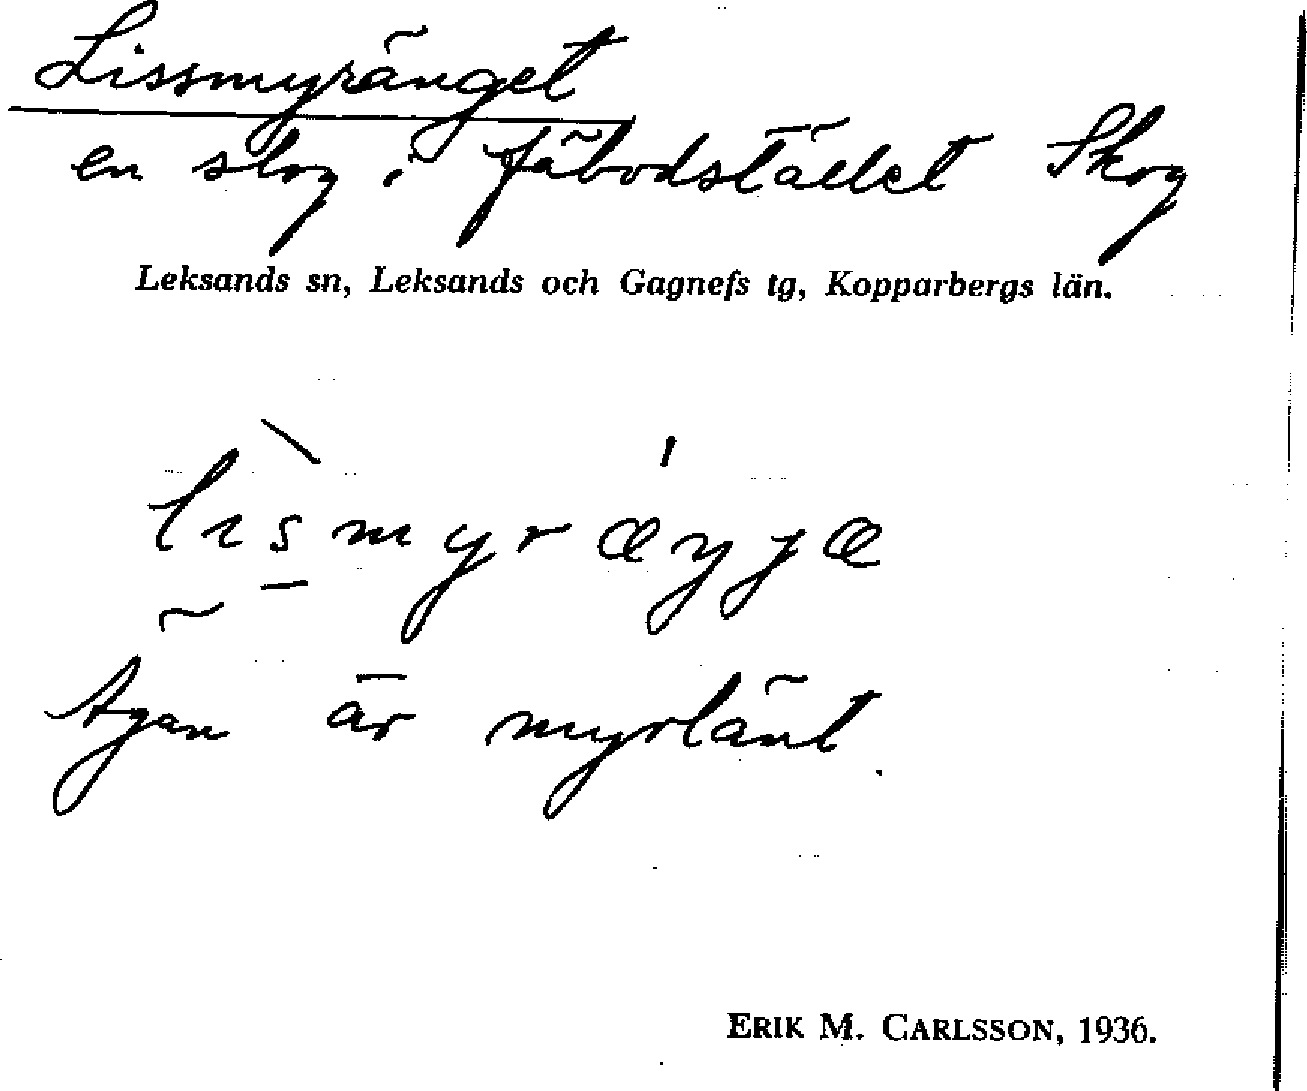 Lissmyränget
en slog i fäbodstället Skog
Leksands sn, Leksands och Gagnefs tg, Kopparbergs län.
lìsmyrǽŋjæ
Ägan är myrlänt.
ERIK M. CARLSSON, 1936.